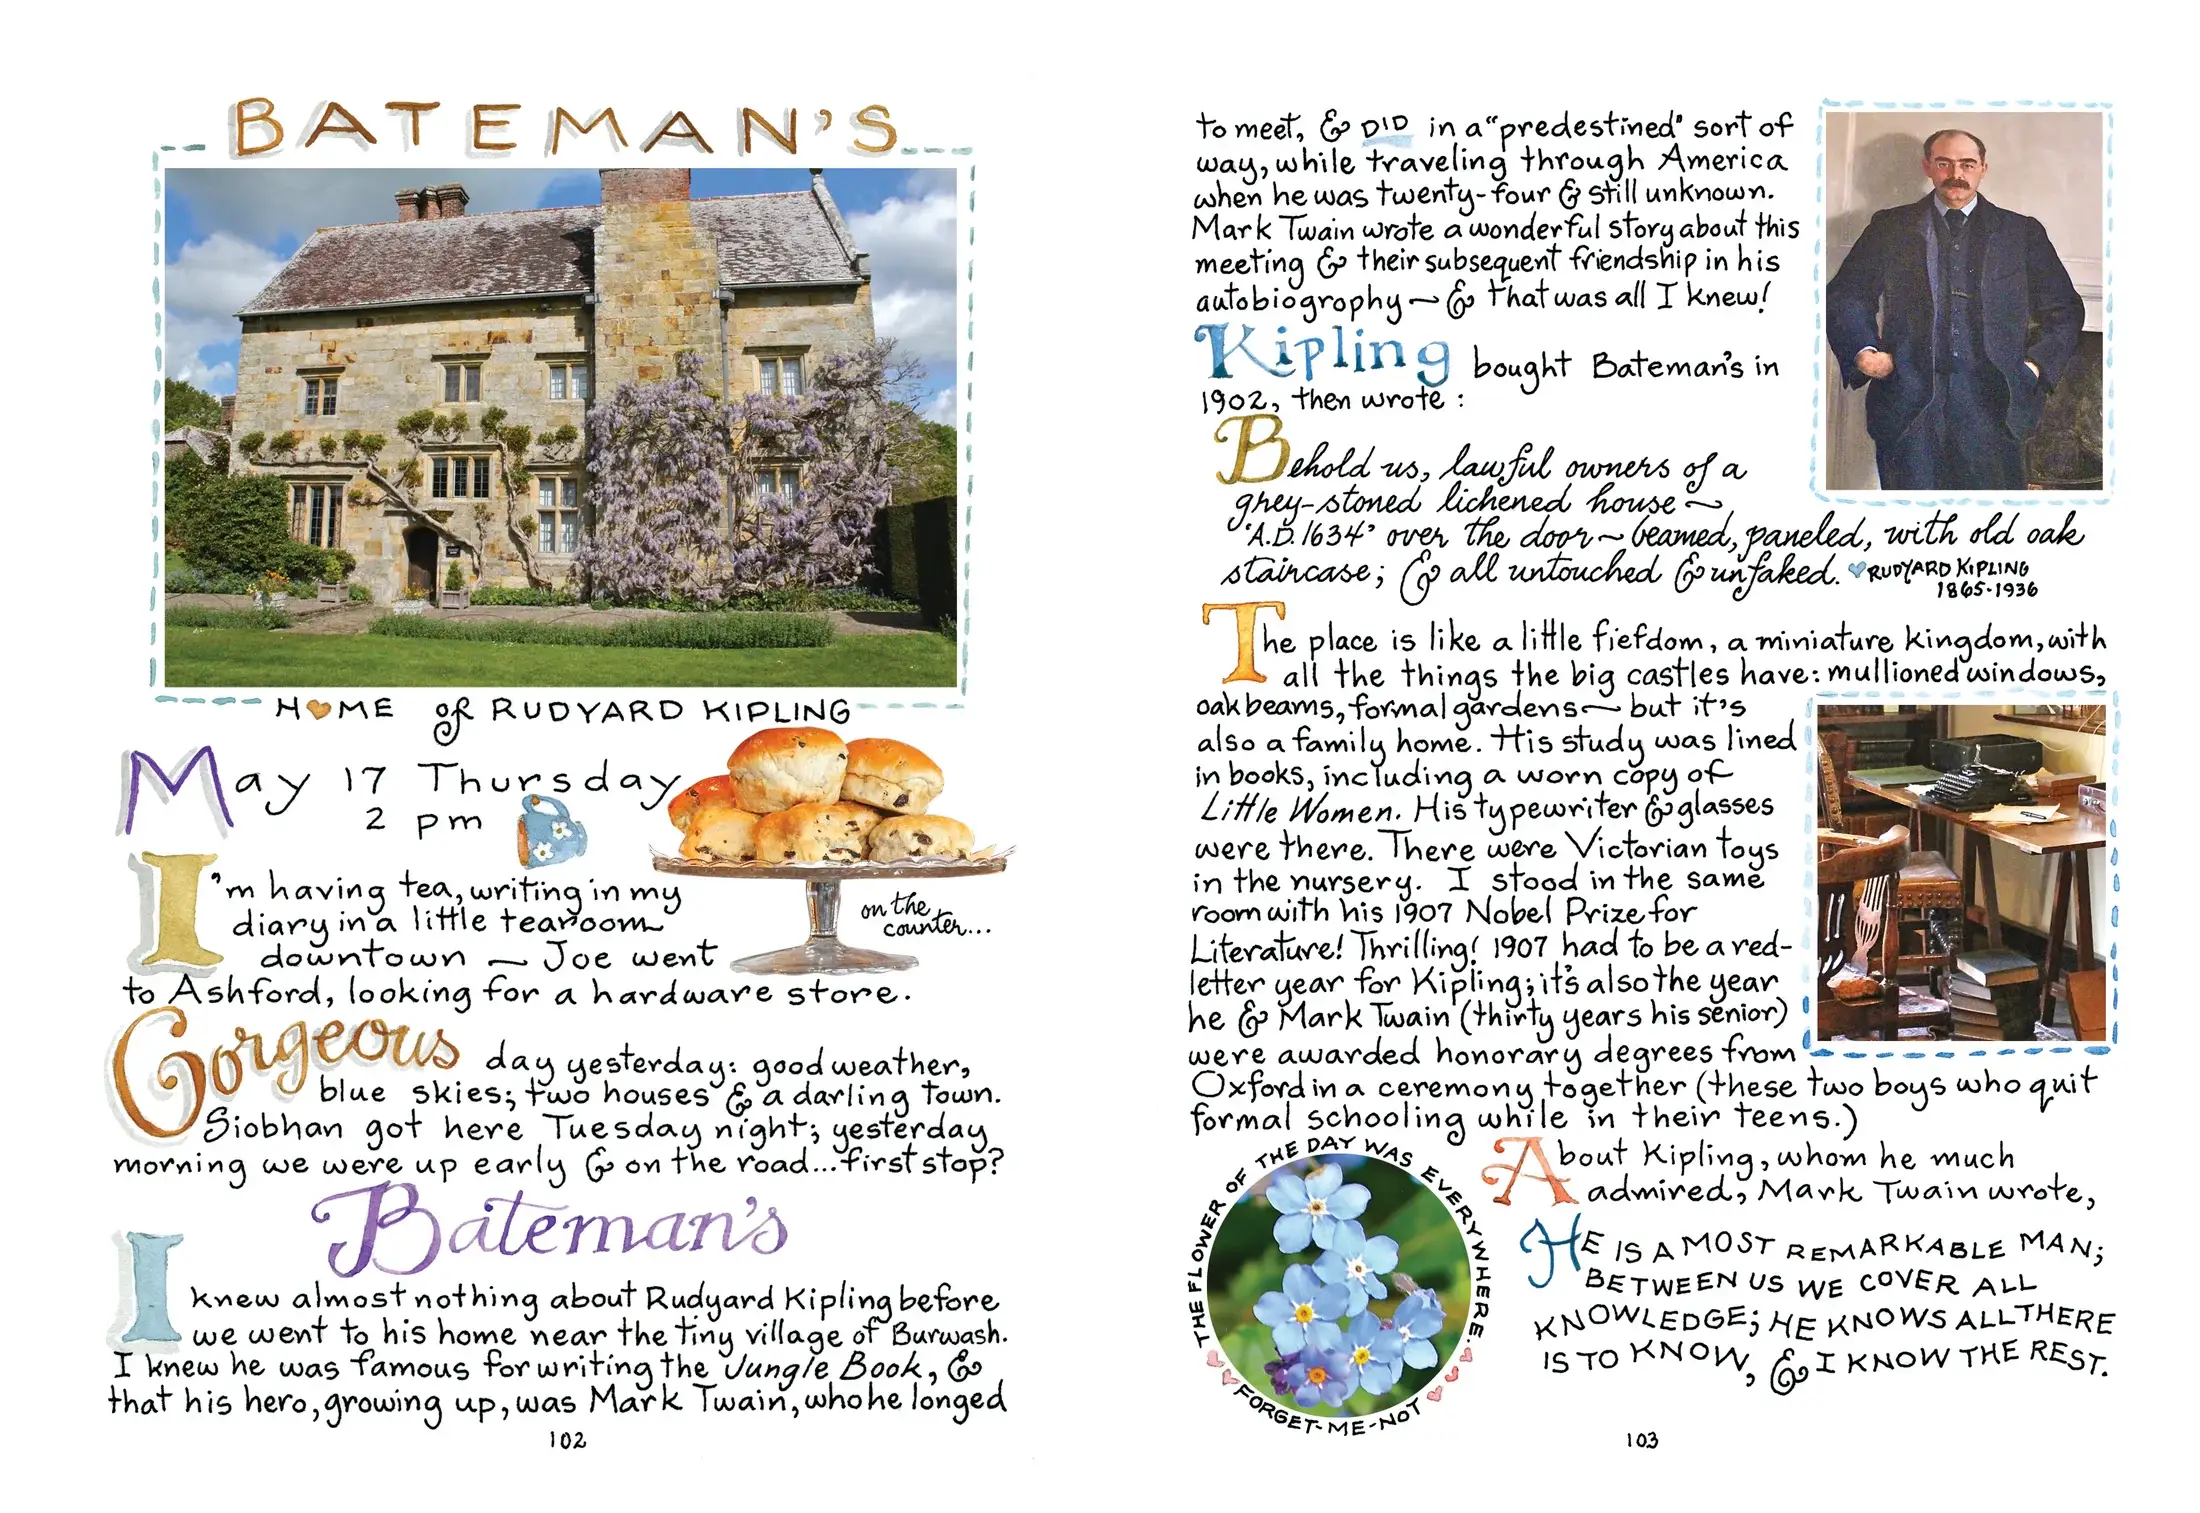 BATEMAN'S
HOME of RUDYARD KIPLING
May 17 Thursday
2 pm
I'm having tea, writing in my
diary in a little tearoom
downtown ~ Joe went
to Ashford, looking for a hardware store.
on the
counter...
Gorgeous day yesterday: good weather,
blue skies; two houses & a darling town.
Siobhan got here Tuesday night; yesterday
morning we were up early & on the road...first stop?
Bateman's
I knew almost nothing about Rudyard Kipling before
we went to his home near the tiny village of Burwash.
I knew he was famous for writing the Jungle Book, &
that his hero, growing up, was Mark Twain, who he longed
102
to meet, & DID in a "predestined" sort of
way, while traveling through America
when he was twenty-four & still unknown.
Mark Twain wrote a wonderful story about this
meeting & their subsequent friendship in his
autobiography ~ & that was all I knew!
Kipling bought Bateman's in
1902, then wrote:
Behold us, lawful owners of a
grey-stoned lichened house ~
'A.D. 1634' over the door ~ beamed, paneled, with old oak
staircase; & all untouched & unfaked. ♥ RUDYARD KIPLING
1865-1936
The place is like a little fiefdom, a miniature kingdom, with
all the things the big castles have: mullioned windows,
oak beams, formal gardens ~ but it's
also a family home. His study was lined
in books, including a worn copy of
Little Women. His typewriter & glasses
were there. There were Victorian toys
in the nursery. I stood in the same
room with his 1907 Nobel Prize for
Literature! Thrilling! 1907 had to be a red-
letter year for Kipling; it's also the year
he & Mark Twain (thirty years his senior)
were awarded honorary degrees from
Oxford in a ceremony together (these two boys who quit
formal schooling while in their teens.)
THE FLOWER OF THE DAY WAS EVERYWHERE.
FORGET-ME-NOT
About Kipling, whom he much
admired, Mark Twain wrote,
HE IS A MOST REMARKABLE MAN;
BETWEEN US WE COVER ALL
KNOWLEDGE; HE KNOWS ALL THERE
IS TO KNOW, & I KNOW THE REST.
103